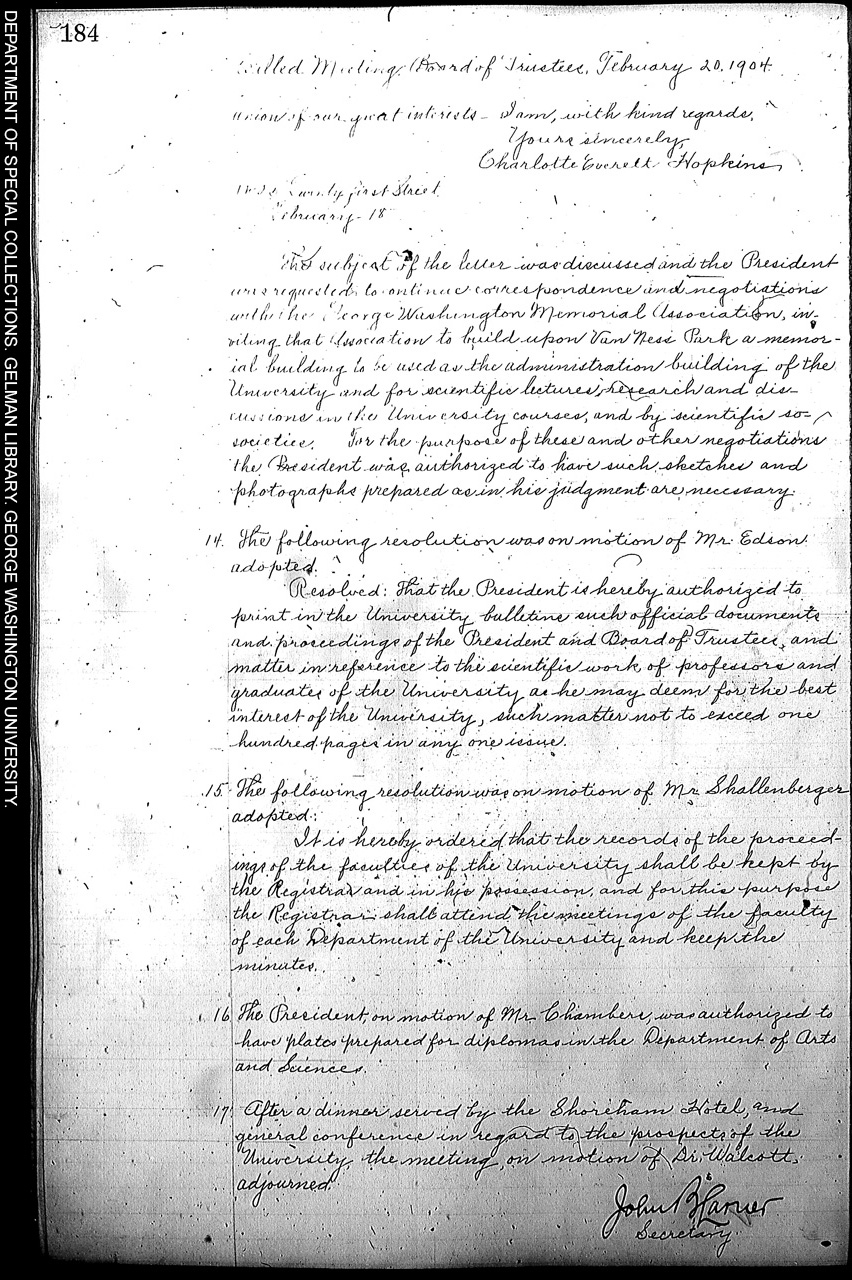 184
Called Meeting, Board of Trustees, February 20, 1904.
union of our great interests - I am, with kind regards,
Yours sincerely,
Charlotte Everett Hopkins
Twenty first Street
February - 18
The subject of the letter was discussed and the President
was requested to continue correspondence and negotiations
with the George Washington Memorial Association, in-
viting that Association to build upon Van Ness Park a memor-
ial building to be used as the administration building of the
University and for scientific lectures, research and dis-
cussions in the University courses, and by scientific so-
societies. For the purpose of these and other negotiations
the President was authorized to have such sketches and
photographs prepared as in his judgment are necessary.
14. The following resolution was on motion of Mr. Edson
adopted.
Resolved: That the President is hereby authorized to
print in the University bulletins such official documents
and proceedings of the President and Board of Trustees, and
matter in reference to the scientific work of professors and
graduates of the University as he may deem for the best
interest of the University, such matter not to exceed one
hundred pages in any one issue.
15. The following resolution was on motion of Mr. Shallenberger
adopted:
It is hereby ordered that the records of the proceed-
ings of the faculties of the University shall be kept by
the Registrar and in his possession, and for this purpose
the Registrar shall attend the meetings of the faculty
of each Department of the University and keep the
minutes.
16. The President, on motion of Mr. Chambers, was authorized to
have plates prepared for diplomas in the Department of Arts
and Sciences.
17. After a dinner served by the Shoreham Hotel, and
general conference in regard to the prospects of the
University the meeting on motion of Dr. Walcott,
adjourned.
John B Larner
Secretary.
DEPARTMENT OF SPECIAL COLLECTIONS. GELMAN LIBRARY. GEORGE WASHINGTON UNIVERSITY.